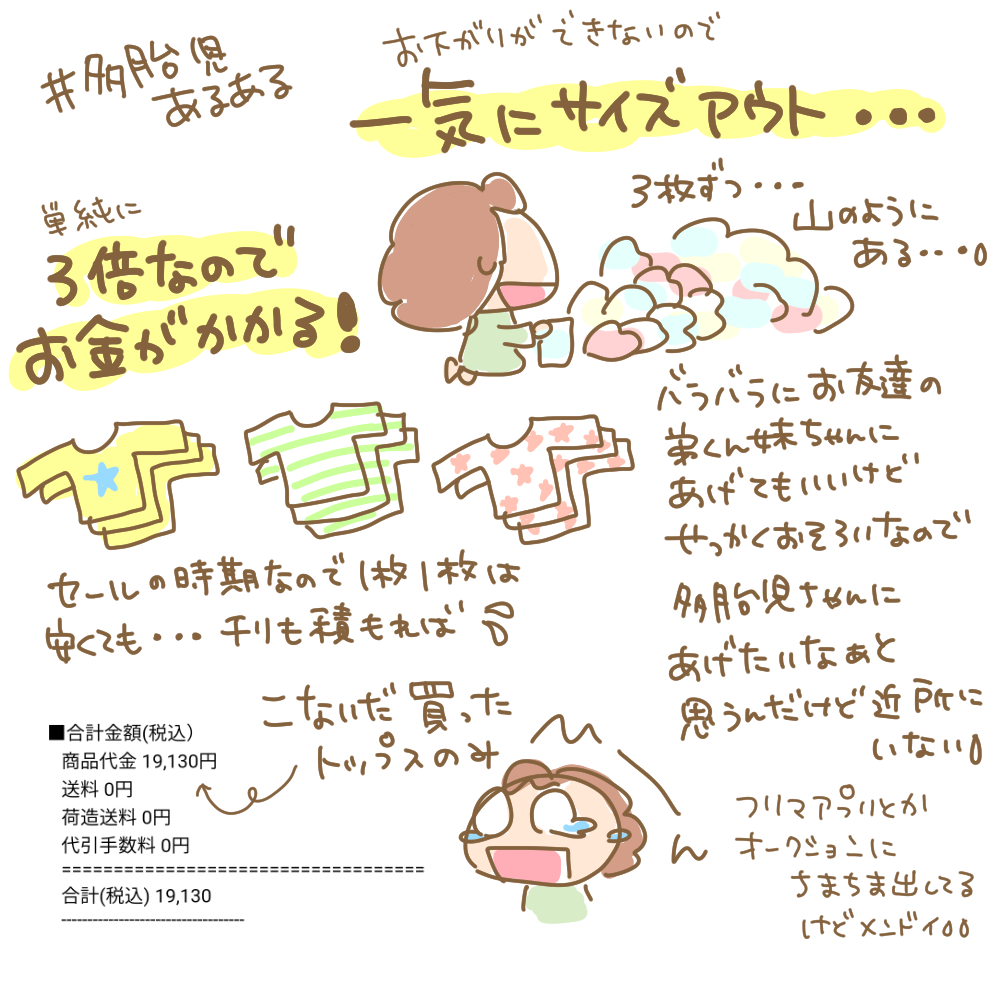 #多胎児
あるある
お下がりができないので
一気にサイズアウト・・・
3枚ずつ・・・
山のように
ある・・・
単純に
3倍なので
お金がかかる!
バラバラにお友達の
弟くん妹ちゃんに
あげてもいいけど
せっかくおそろいなので
多胎児ちゃんに
あげたいなぁと
思うんだけど近所に
いない
セールの時期なので1枚1枚は
安くても・・・チリも積もれば
こないだ買った
トップスのみ
■合計金額(税込)
商品代金 19,130円
送料 0円
荷造送料 0円
代引手数料 0円
===================================
合計(税込) 19,130
-----------------------------------
フリマアプリとか
オークションに
ちまちま出してる
けどメンドイ